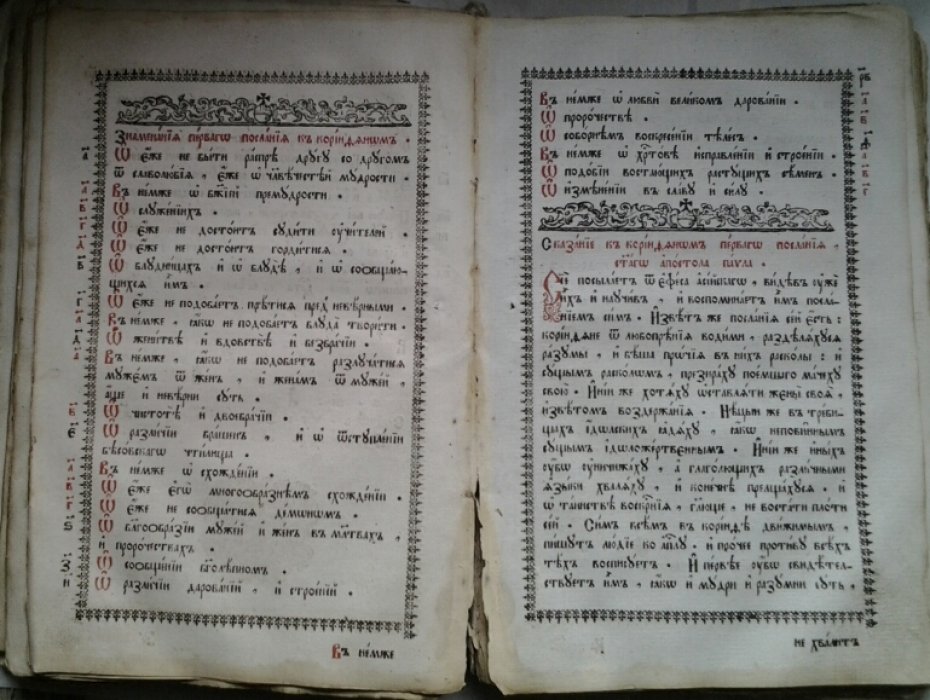 Знаменанїѧ пе́рвагѡ посла́нїѧ къ корі́нѳѧнѡмъ .
Ѿ е́же не бы́ти ра́спрѣ дрꙋ́гꙋ со дрꙋго́мъ
Въ не́мже ѡ҆ бж҃їей премꙋ́дрости .
Ѡ слꙋже́нїихъ .
Ѡ е́же не досто́итъ сꙋди́ти ᲂу҆чи́телей .
Ѡ е́же не досто́итъ горди́тисѧ .
Ѡ блꙋдѧ́щихъ и҆ ѡ҆ блꙋ́дѣ , и҆ ѡ҆ соѡбща́ю-
щихсѧ и҆̀мъ .
Ѡ е́же не подоба́етъ прѣ́тисѧ пред̾ невѣ́рными .
Въ не́мже , ꙗ҆́кѡ не подоба́етъ блꙋда̀ твори́ти .
Ѡ жени́твѣ и҆ вдовствѣ̀ и҆ безбра́чїи .
Въ не́мже , ꙗ҆́кѡ не подоба́етъ разлꙋча́тисѧ
мꙋжє́мъ ѿ же́нъ , и҆ жена́мъ ѿ мꙋже́й ,
а҆́ще и҆ невѣ́рни сꙋ́ть .
Ѡ чистотѣ̀ и҆ двоебра́чїи .
Ѡ разли́чїи бра́шенъ , и҆ ѡ҆ ѿстꙋпле́нїи
бѣсо́вскагѡ чти́лища .
Въ не́мже ѡ҆ схожде́нїи .
Ѡ е́же є҆гѡ̀ многоѡбра́знѣмъ схожде́нїи .
Ѡ е́же не соѡбща́тисѧ де́мѡнѡмъ .
Ѡ благоѡбра́зїи мꙋже́й и҆ же́нъ въ мл҃твахъ ,
и҆ проро́чествахъ .
Ѡ соѡбще́нїи бл҃голѣ́пномъ .
Ѡ разли́чїи дарова́нїй , и҆ строе́нїй .
Въ не́мже
рв
Въ не́мже ѡ҆ любвѝ вели́комъ дарова́нїи .
Ѡ проро́чествѣ .
Ѡ собо́рнѣмъ воскресе́нїи тѣле́съ .
Въ не́мже ѡ҆ хрⷭ҇то́вѣ и҆справле́нїи и҆ строе́нїи .
Ѡ подо́бїи востаю́щихъ растꙋ́щихъ сѣ́менъ .
Ѡ и҆змѣне́нїи въ сла́вꙋ и҆ си́лꙋ .
Сказа́нїе къ корі́нѳѧнѡмъ пе́рвагѡ посла́нїѧ ,
ст҃а́гѡ а҆по́стола па́ѵла .
Сїѐ посыла́етъ ѿ є҆фе́са а҆сі́йскагѡ , ви́дѣвъ ᲂу҆́же
и҆̀хъ и҆ наꙋчи́въ , и҆ воспомина́етъ и҆̀мъ посла́-
нїемъ си́мъ . И҆звѣ́тъ же посла́нїѧ сеѝ є҆́сть :
корі́нѳѧне ѿ любопрѣ́нїѧ води́ми , раздѣлѧ́хꙋсѧ
ра́зꙋмы , и҆ бѣ́ша прѡ́чїѧ въ ни́хъ раско́лы : и҆
сꙋ́щымъ раско́лѡмъ , презира́хꙋ пое́мшаго ма́чехꙋ
свою̀ . И҆ні́и же хотѧ́хꙋ ѡ҆ставлѧ́ти жєны̀ своѧ̑ ,
и҆звѣ́томъ воздержа́нїѧ . Нѣ́цыи же въ тре́би-
щахъ і҆́дѡлскихъ ꙗ҆дѧ́хꙋ , ꙗ҆́кѡ непови̑ннымъ
сꙋ́щымъ і҆дѡложе́ртвєннымъ . И҆ні́и же и҆́ныхъ
ᲂу҆́бѡ ᲂу҆ничижа́хꙋ , а҆ глаго́лющихъ разли́чными
ꙗ҆зы́ки хвалѧ́хꙋ , и҆ коне́чнѣе прельща́хꙋсѧ . и҆
ѡ҆ та́инствѣ воскрⷭ҇нїѧ , гл҃юще , не воста́ти пло́ти
се́й . Си̑мъ всѣ̑мъ въ корі́нѳѣ дви́жимымъ ,
пи́шꙋтъ лю́дїе ко а҆пⷭ҇лꙋ . и҆ про́чее проти́вꙋ всѣ́хъ
тѣ́хъ восписꙋ́етъ . И҆ пе́рвѣе ᲂу҆́бѡ свидѣ́тел-
ствꙋетъ и҆̀мъ , ꙗ҆́кѡ и҆ мꙋ́дри и҆ разꙋ́мни сꙋ́ть ,
не хва́литъ